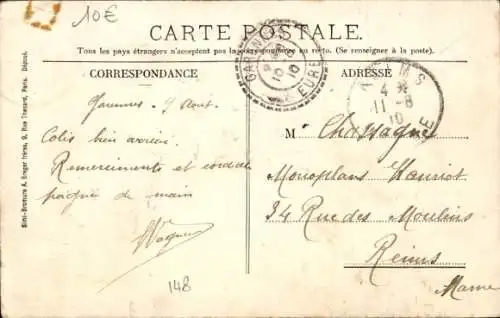 10€
CARTE POSTALE.
Tous les pays étrangers n'acceptent pas la correspondance au recto. (Se renseigner à la poste).
CORRESPONDANCE
Garennes - 9 Aout.
Colis bien arrivé.
Remerciments et cordiale
poignée de main
Wagner
148
ADRESSE
GARENNES
EURE
REIMS
4
11-8
10
M Chassagne
Monoplans Hanriot
34 Rue des Moulins
Reims
Marne
Simili-Bromure A. Breger frères, 9, Rue Thénard, Paris. Déposé.